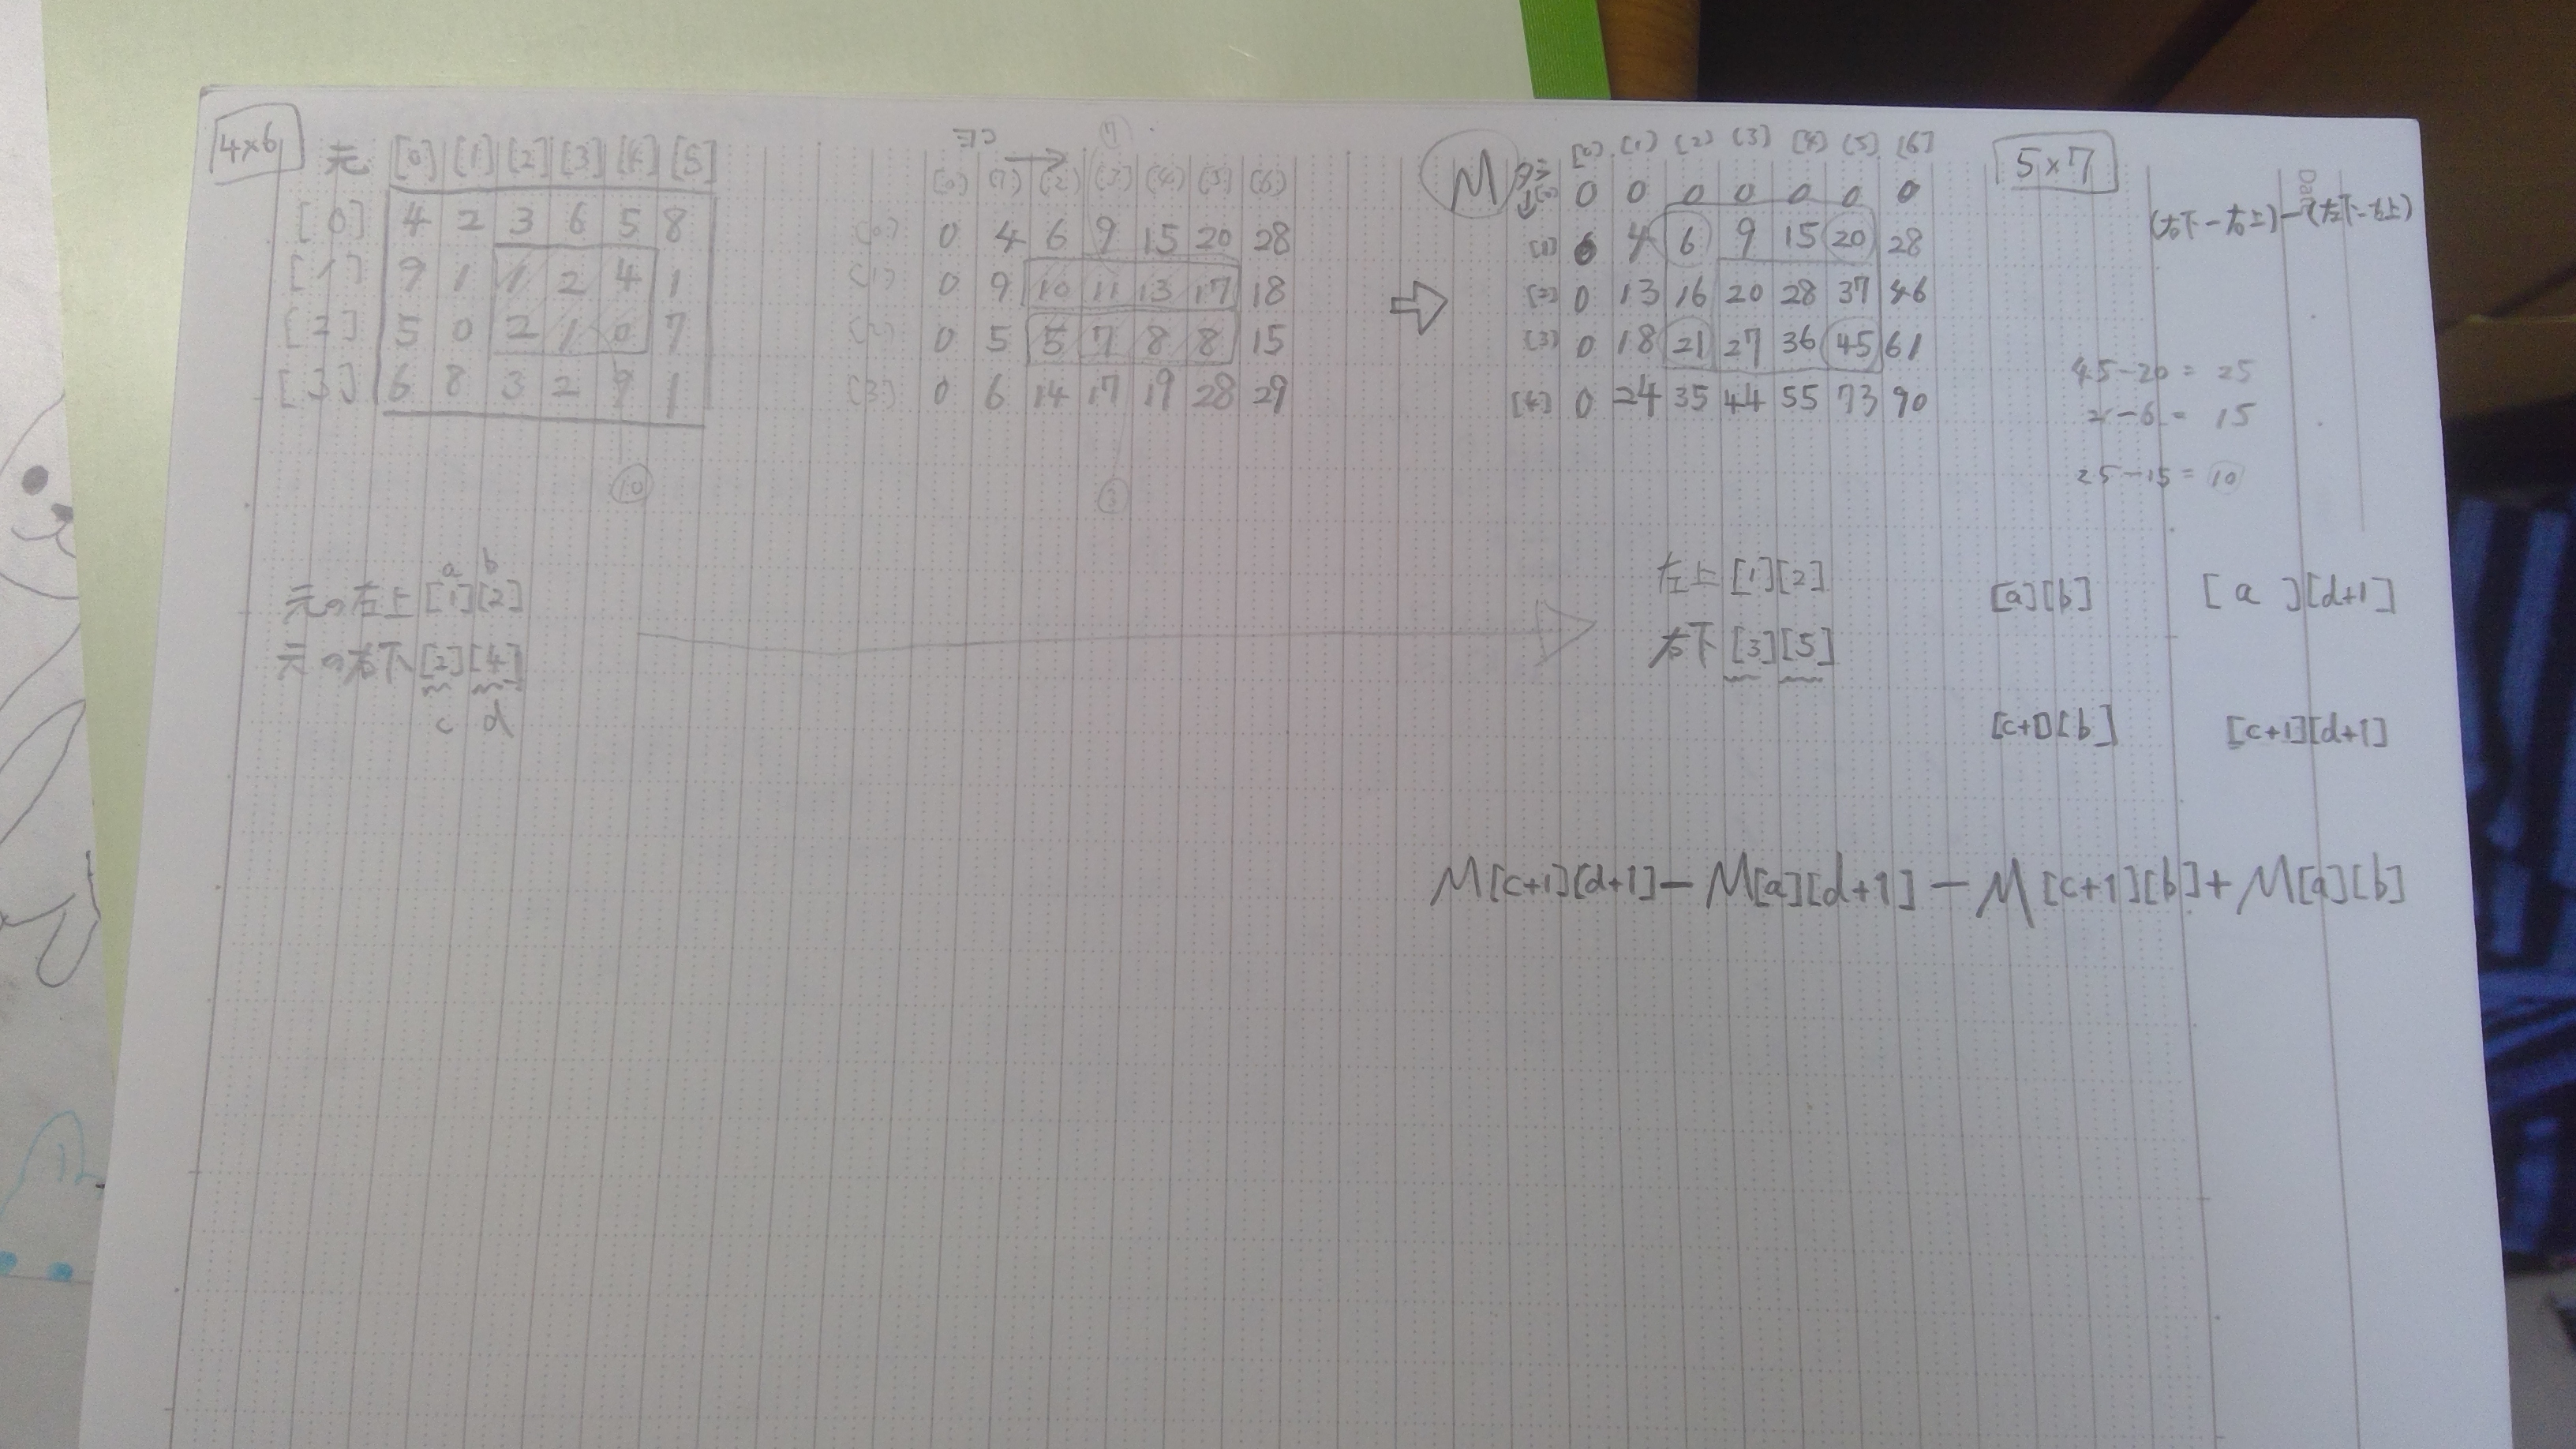 4×6 元 [0] [1] [2] [3] [4] [5]
[0] 4 2 3 6 5 8
[1] 9 1 1 2 4 1
[2] 5 0 2 1 0 7
[3] 6 8 3 2 9 1
10
ヨコ →
[0] [1] [2] [3] [4] [5] [6]
[0] 0 4 6 9 15 20 28
[1] 0 9 10 11 13 17 18
[2] 0 5 5 7 8 8 15
[3] 0 6 14 17 19 28 29
3
⇨
M タテ ↓ [0] [1] [2] [3] [4] [5] [6] 5×7
[0] 0 0 0 0 0 0 0
[1] 0 4 6 9 15 20 28
[2] 0 13 16 20 28 37 46
[3] 0 18 21 27 36 45 61
[4] 0 24 35 44 55 73 90
Date
(右下-右上)-(左下-左上)
45-20 = 25
-6 = 15
25-15 = 10
a b
元の左上 [1][2]
元の右下 [2][4]
c d
左上 [1][2]
右下 [3][5]
[a][b] [a][d+1]
[c+1][b] [c+1][d+1]
M[c+1][d+1]-M[a][d+1]-M[c+1][b]+M[a][b]